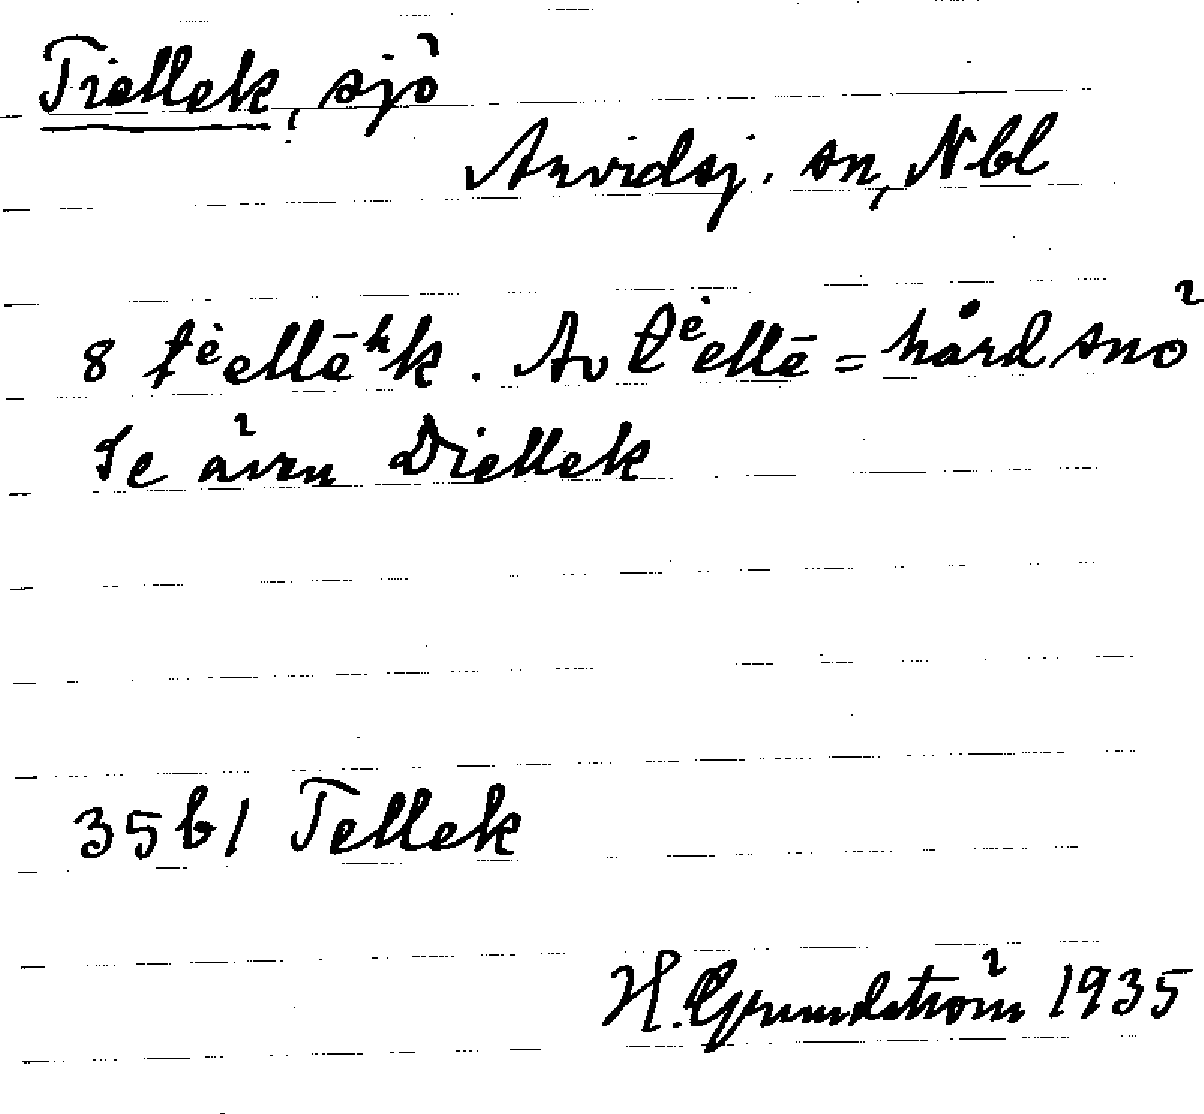 Tiellek, sjö
Arvidsj. sn, Nbl
8 tᵉ̇ellēʰk. Av tᵉ̇ellē = hård snö
Se även Diellek
35b1 Tellek
H. Grundström 1935